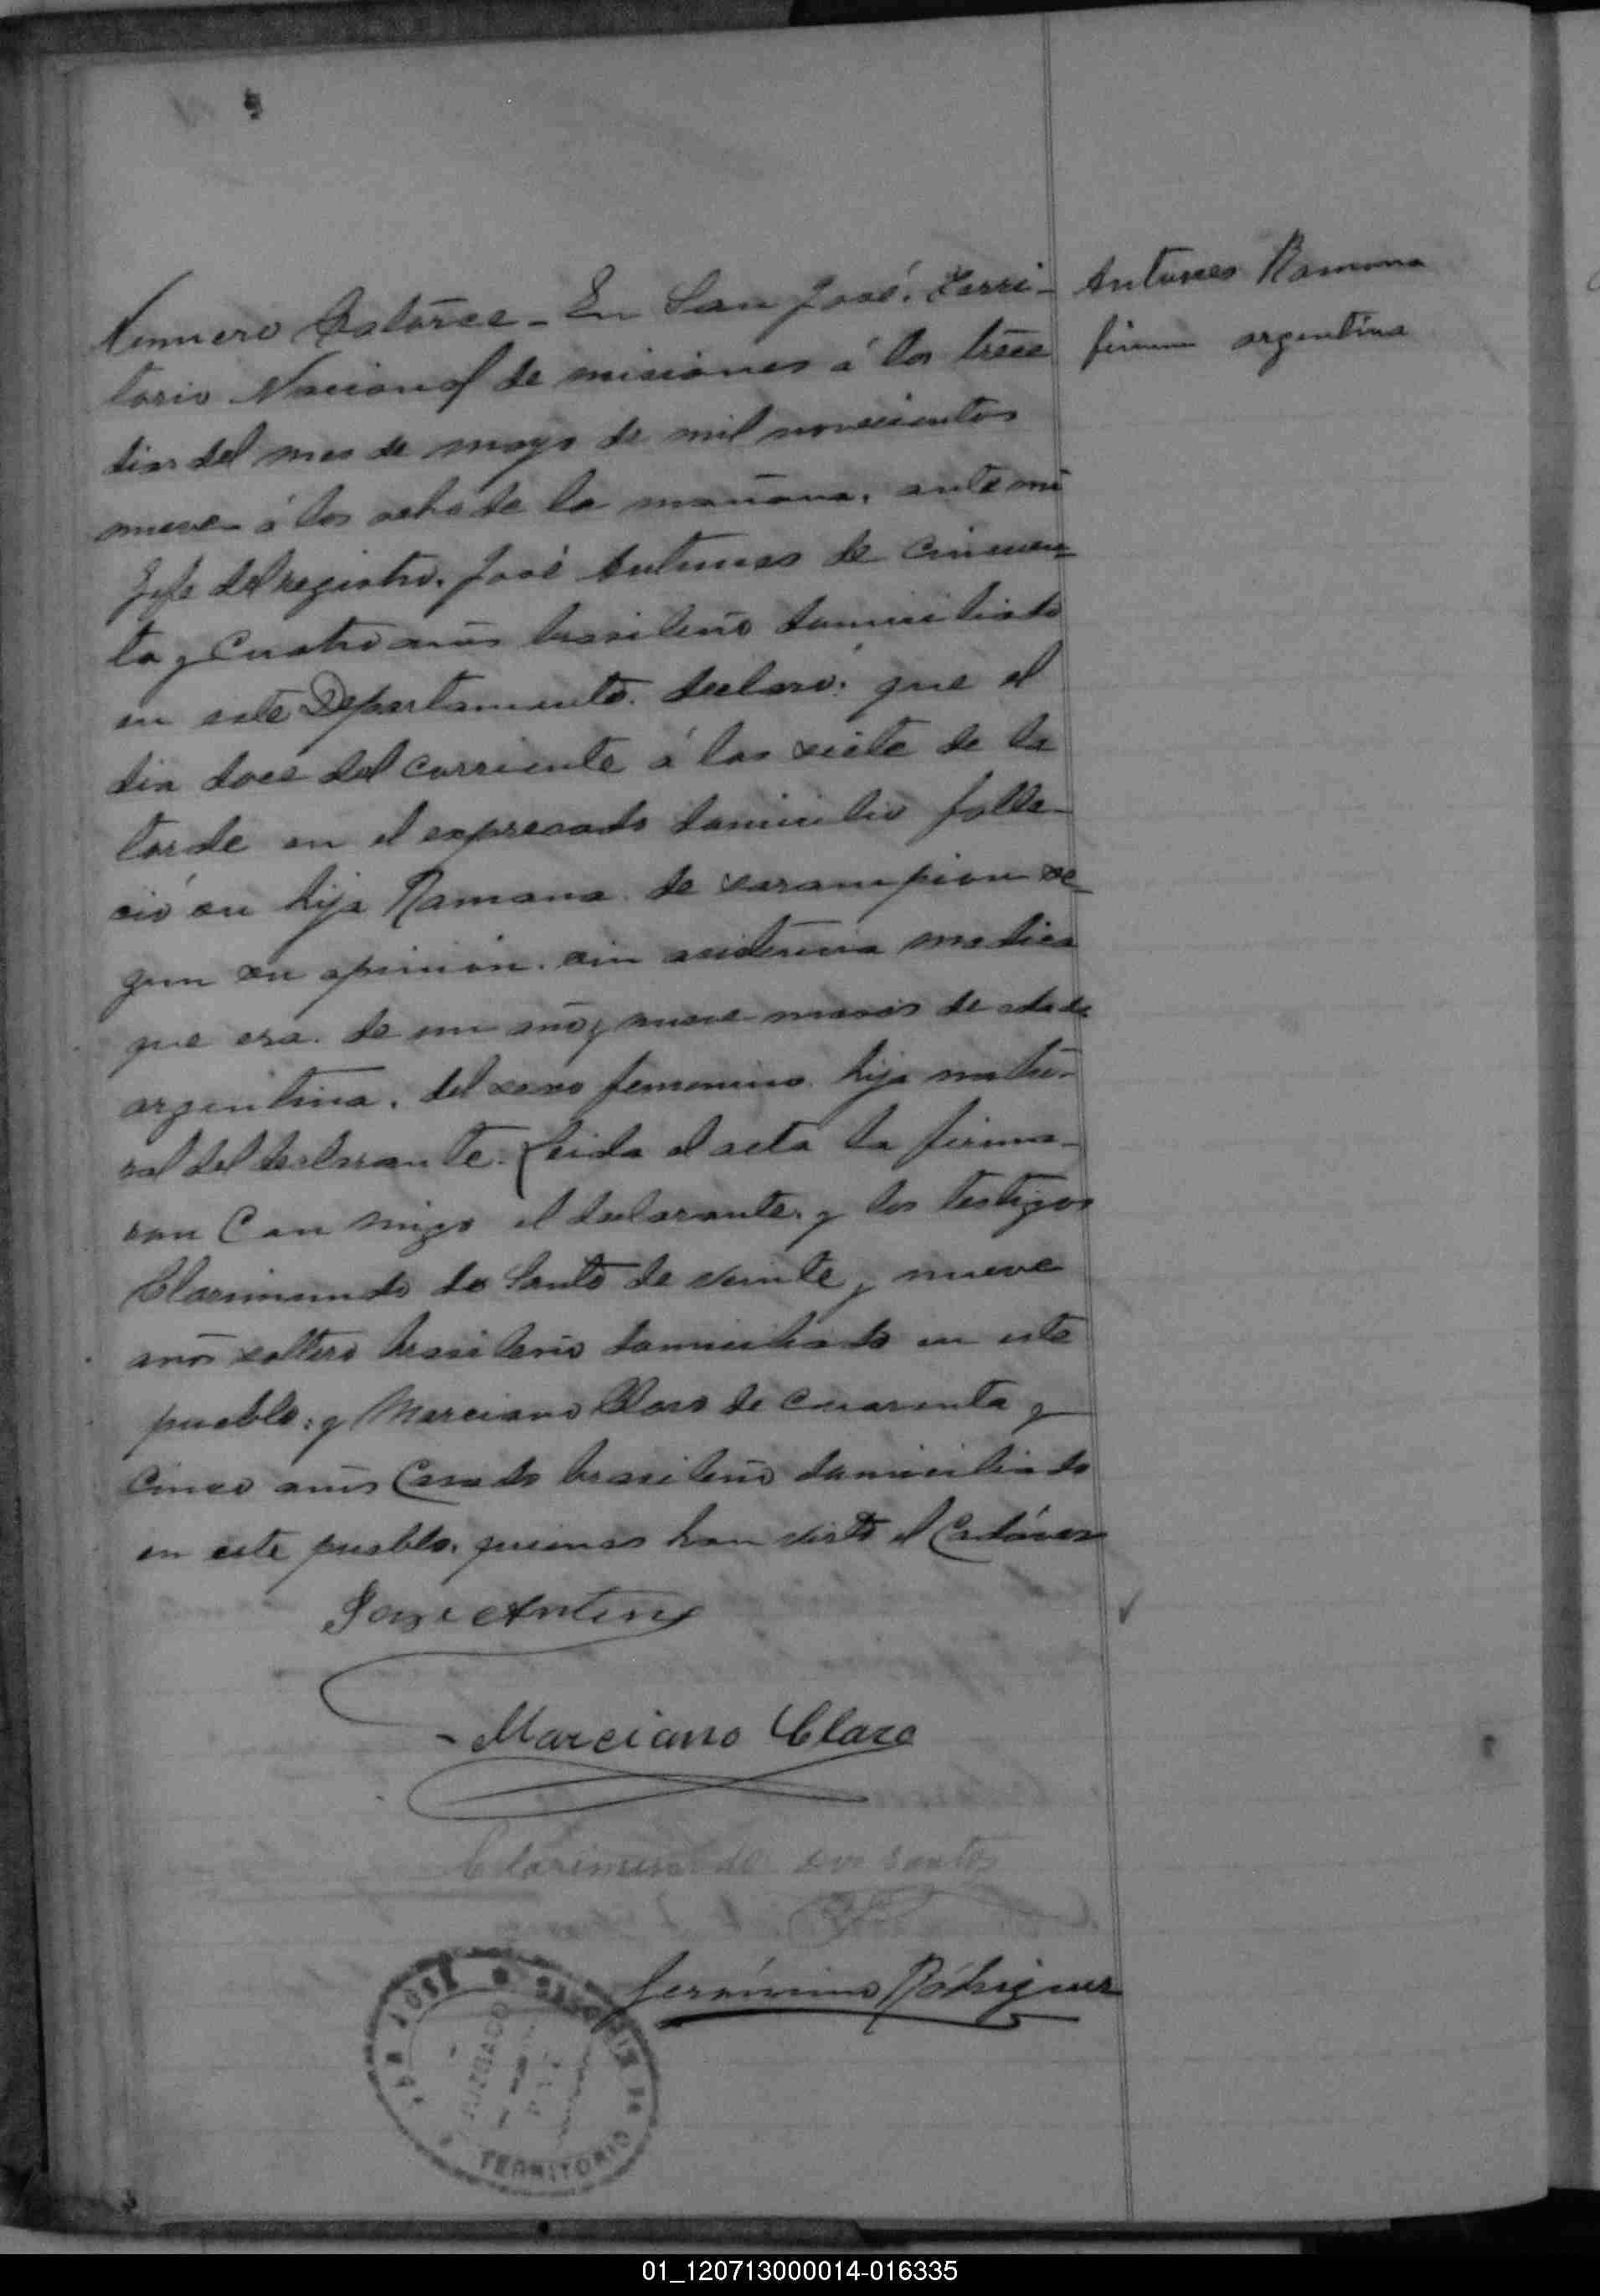 Antunes Ramona
argentina
Numero Catorce - En San José. Terri-
torio Nacional de misiones á los trece
dias del mes de mayo de mil novecientos
nueve á las ocho de la mañana, ante mi
Jefe del registro. José Antunes de cincuen-
ta y Cuatro años brasileño domiciliado
en este Departamento. declaró: que el
dia doce del corriente á las siete de la
tarde en el expresado domicilio falle-
ció su hija Ramona de sarampion se-
gun su opinion. sin asistencia medica
que era de un año y nueve meses de edad
argentina. del sexo femenino hija natu-
ral del declarante. Leida el acta la firma-
ron Con migo el declarante, y los testigos
Clarimundo do Santo de veinte y nueve
años soltero brasileño domiciliado en este
pueblo: y Marciano Claro de cuarenta y
cinco años Casado brasileño domiciliado
en este pueblo. quienes han visto el Cadáver
Jose Antun
Marciano Claro
Clarimundo dos Santos
Gerónimo Rodriguez
SAN JOSÉ
JUZGADO
PAZ
TERRITORIO
MISIONES
01_120713000014-016335